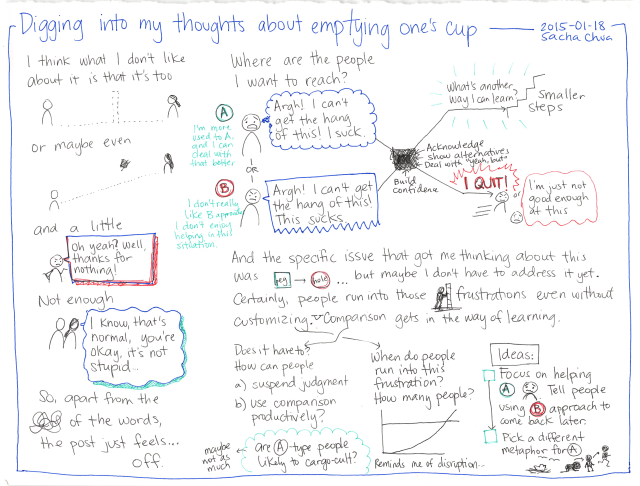 Digging into my thoughts about emptying one's cup
2015-01-18
Sacha Chua
I think what I don't like
about it is that it's too
or maybe even
and a little
Oh yeah? Well,
thanks for
nothing!
Not enough
I know, that's
normal, you're
okay, it's not
stupid...
So, apart from the
of the words,
the post just feels...
off.
Where are the people
I want to reach?
A
I'm more
used to A,
and I can
deal with
that better.
Argh! I can't
get the hang
of this! I suck.
OR
B
I don't really
like B approach
I don't enjoy
helping in this
situation.
Argh! I can't get
the hang of this!
This sucks.
What's another
way I can learn?
Smaller
steps
Acknowledge
show alternatives
Deal with "yeah, but"
Build
confidence
I QUIT!
or
I'm just not
good enough
at this
And the specific issue that got me thinking about this
was peg → hole ... but maybe I don't have to address it yet.
Certainly, people run into those frustrations even without
customizing. Comparison gets in the way of learning.
Does it have to?
How can people
a) suspend judgment
b) use comparison
productively?
maybe
not as
much
are A-type people
likely to cargo-cult?
When do people
run into this
frustration?
How many people?
Reminds me of disruption...
Ideas:
Focus on helping
A Tell people
using B approach to
come back later.
Pick a different
metaphor for A